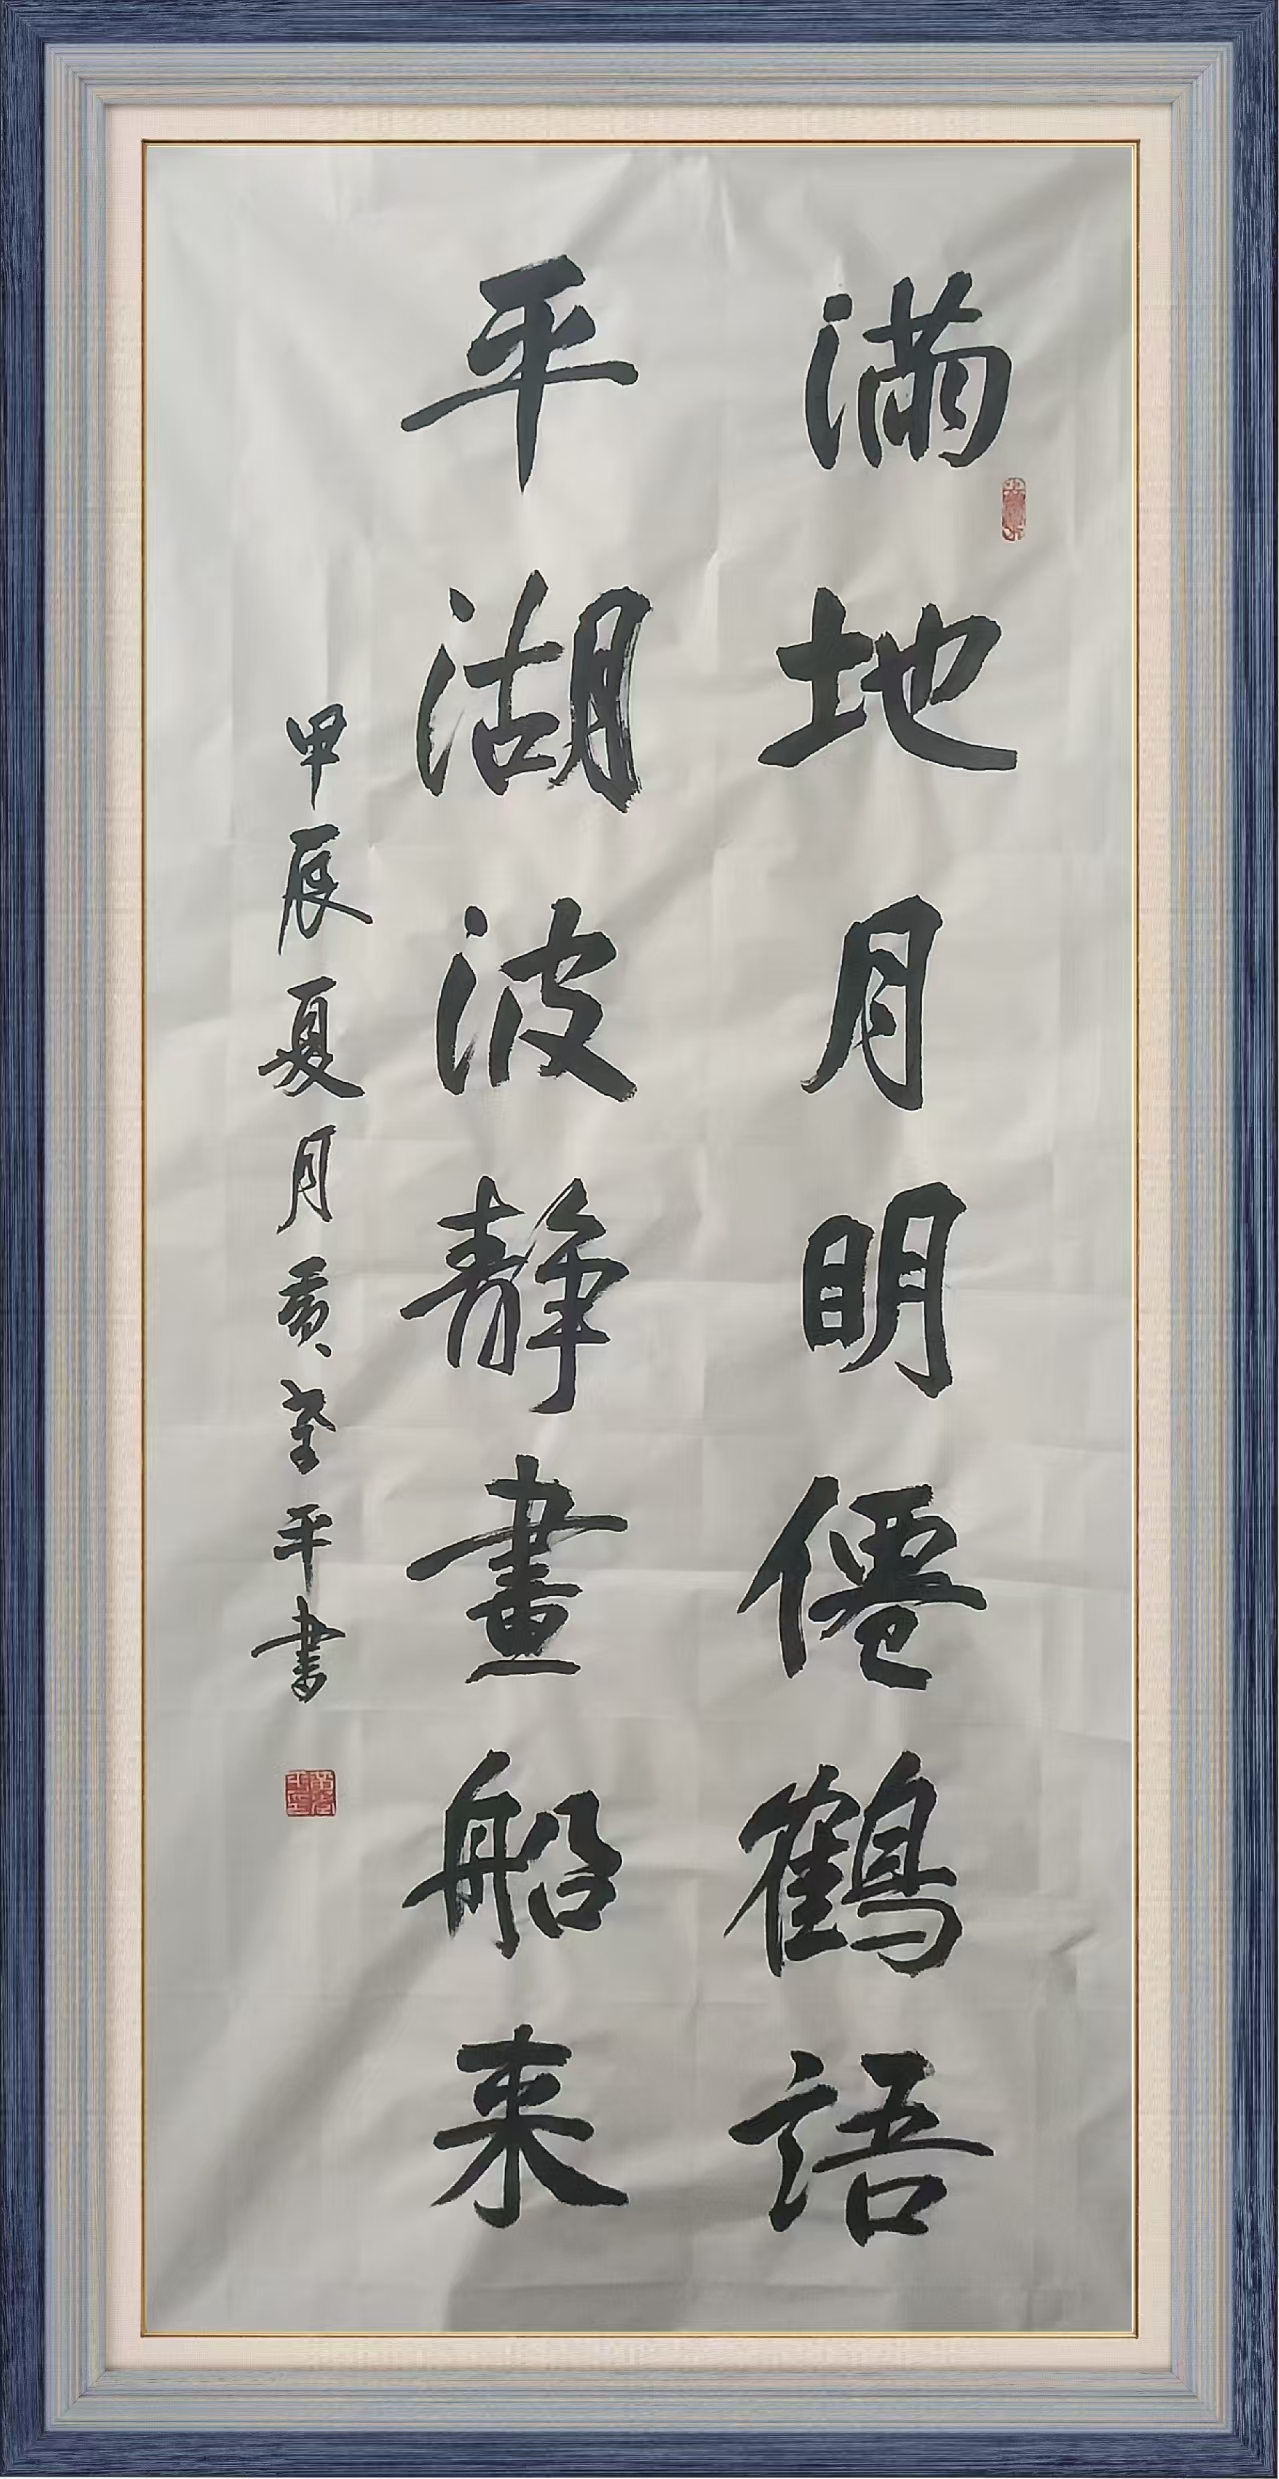 滿地月明僊鶴語
平湖波静畫船来
甲辰夏月黄平書